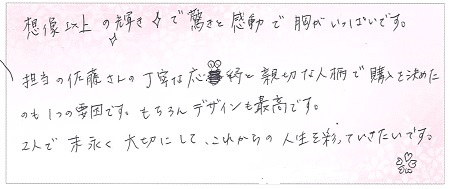 想像以上の輝きで驚きと感動で胸がいっぱいです。
担当の佐藤さんの丁寧な応対と親切な人柄で購入を決めた
のも1つの要因です。もちろんデザインも最高です。
2人で末永く大切にして、これからの人生を彩っていきたいです。